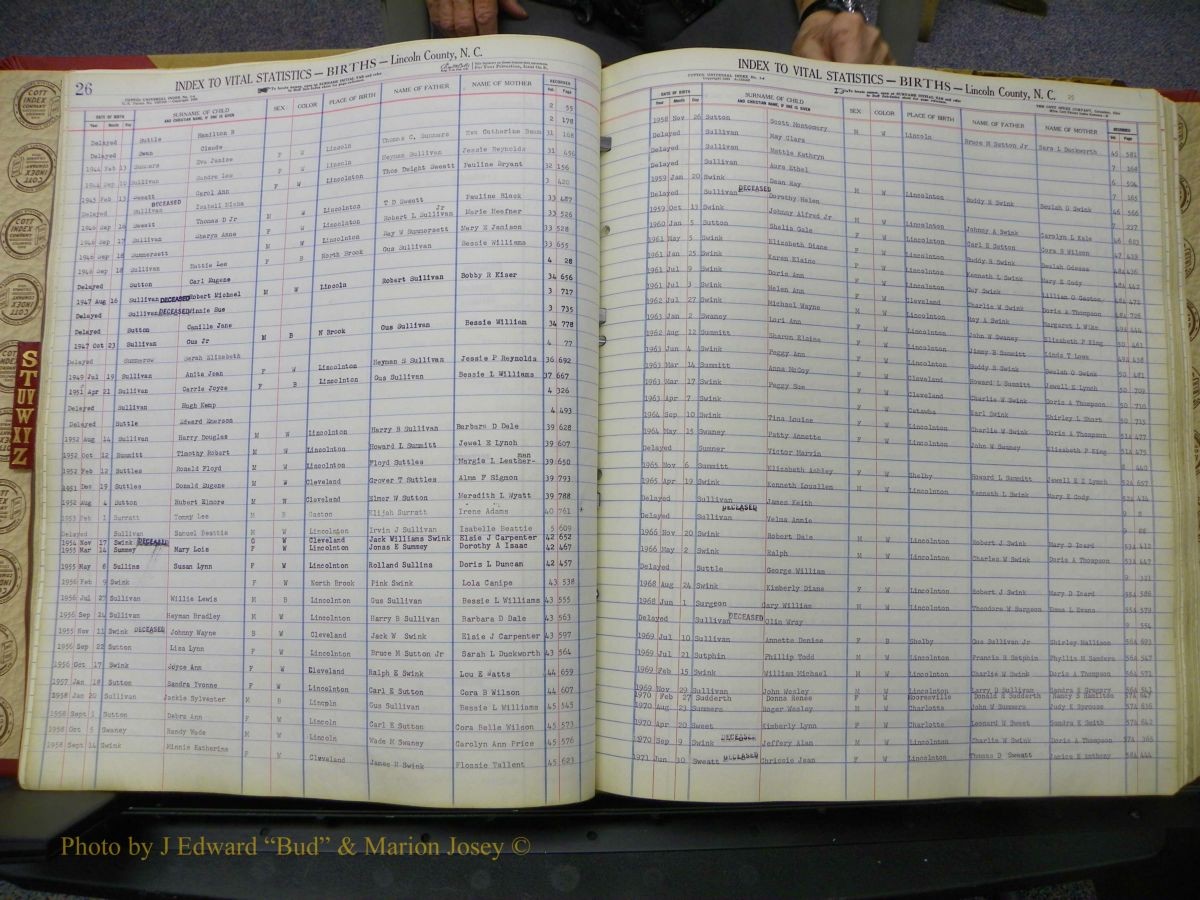 26
INDEX TO VITAL STATISTICS — BIRTHS — Lincoln County, N. C.
DATE OF BIRTH SURNAME OF CHILD SEX COLOR PLACE OF BIRTH NAME OF FATHER NAME OF MOTHER RECORDED
Year Month Day AND CHRISTIAN NAME, IF ONE IS GIVEN Vol. Page
Delayed Suttle Hamilton B 2 55
Delayed Swan Claude 2 178
1944 Feb 13 Summers Eva Janise F W Lincoln Thomas C. Summers Eva Catherine 31 168
Sullivan Sandra Lee F W Lincoln Heyman Sullivan Jessie Reynolds 31 456
1945 Feb 13 Sweatt Carol Ann F W Lincolnton Thos Dwight Sweatt Pauline Bryant 32 156
Delayed Sullivan DECEASED 3 420
Sweatt Thomas D Jr M W Lincolnton T D Sweatt Pauline Black 33 487
1946 Sep 17 Sullivan Sharyn Anne F W Lincolnton Robert L Sullivan Jr Marie Heefner 33 526
1946 Sep 18 Summersett M W Lincolnton Ray W Summersett Mary E Janison 33 528
1946 Sep 18 Sullivan Hattie Lee F B North Brook Gus Sullivan Bessie Williams 33 655
Delayed Sutton Carl Eugene 4 28
1947 Aug 16 Sullivan DECEASED Robert Michael M W Lincoln Robert Sullivan Bobby R Kiser 34 656
Delayed Sullivan DECEASED Winnie Sue 3 717
Delayed Sutton Camille Jane 3 735
1947 Oct 23 Sullivan Gus Jr M B N Brook Gus Sullivan Bessie William 34 778
Delayed Summerow Sarah Elizabeth 4 77
1949 Jul 19 Sullivan Anita Jean F W Lincolnton Heyman S Sullivan Jessie P Reynolds 36 692
1951 Apr 21 Sullivan Carrie Joyce F B Lincolnton Gus Sullivan Bessie L Williams 37 667
Delayed Sullivan Hugh Kemp 4 326
Delayed Suttle Edward Emerson 4 493
1952 Aug 14 Sullivan Harry Douglas M W Lincolnton Harry B Sullivan Barbara D Dale 39 628
1952 Oct 12 Summitt Timothy Robert M W Lincolnton Howard L Summitt Jewel E Lynch 39 607
1952 Feb 12 Suttles Ronald Floyd M W Lincolnton Floyd Suttles Margie L Leatherman 39 650
1951 Dec 19 Suttles Donald Eugene M W Cleveland Grover T Suttles Alma F Sigmon 39 793
1952 Aug 4 Sutton Hubert Elmore M W Cleveland Elmer W Sutton Meredith L Wyatt 39 788
1953 Feb 1 Surratt Tommy Lee M B Gaston Elijah Surratt Irene Adams 40 761
Delayed Sullivan Samuel Beattie M W Lincolnton Irvin J Sullivan Isabelle Beattie 5 609
1954 Nov 17 Swink DECEASED G W Cleveland Jack Williams Swink Elsie J Carpenter 42 652
1955 Mar 14 Summey Mary Lois F W Lincolnton Jonas E Summey Dorothy A Isaac 42 467
1955 May 8 Sullins Susan Lynn F W Lincolnton Rolland Sullins Doris L Duncan 42 457
1956 Feb 9 Swink F W North Brook Pink Swink Lola Canipe 43 538
1956 Jul 27 Sullivan Willie Lewis M B Lincolnton Gus Sullivan Bessie L Williams 43 555
1956 Sep 24 Sullivan Heyman Bradley M W Lincolnton Harry B Sullivan Barbara D Dale 43 563
1955 Nov 11 Swink DECEASED Johnny Wayne B W Cleveland Jack W Swink Elsie J Carpenter 43 597
1956 Sep 22 Sutton Lisa Lynn F W Lincolnton Bruce M Sutton Jr Sarah L Duckworth 43 564
1956 Oct 17 Swink Joyce Ann F W Cleveland Ralph E Swink Lou E Watts 44 659
1957 Jan 18 Sutton Sandra Yvonne F W Lincolnton Carl E Sutton Cora B Wilson 44 607
1958 Jan 20 Sullivan Jackie Sylvester M B Lincoln Gus Sullivan Bessie L Williams 45 545
1958 Sept 1 Sutton Debra Ann F W Lincoln Carl E Sutton Cora Belle Wilson 45 573
1958 Oct 5 Swaney Randy Wade M W Lincoln Wade M Swaney Carolyn Ann Price 45 576
1958 Sept 14 Swink Minnie Katherine F W Cleveland James R Swink Flossie Tallent 45 623
INDEX TO VITAL STATISTICS — BIRTHS — Lincoln County, N. C.
DATE OF BIRTH SURNAME OF CHILD SEX COLOR PLACE OF BIRTH NAME OF FATHER NAME OF MOTHER RECORDED
Year Month Day AND CHRISTIAN NAME, IF ONE IS GIVEN Vol. Page
1958 Nov 26 Sutton Scott Montgomery M W Lincoln Bruce M Sutton Jr Sara L Duckworth 45 581
Delayed Sullivan May Clara 7 164
Delayed Sullivan Mattie Kathryn 6 594
Delayed Sullivan Aura Ethel 7 165
1959 Jan 20 Swink Dean Ray M W Lincolnton Buddy H Swink Beulah G Swink 46 566
Delayed Sullivan DECEASED Dorothy Helen 7 227
1959 Oct 13 Swink Johnny Alfred Jr M W Lincolnton Johnny A Swink Carolyn L Kale 46 623
1960 Jan 5 Sutton Shelia Gale F W Lincolnton Carl E Sutton Cora B Wilson 47 439
1961 May 5 Swink Elizabeth Diane F W Lincolnton Buddy H Swink Beulah Odessa
1961 Jan 25 Swink Karen Elaine F W Lincolnton Kenneth L Swink Mary E Cody
1961 Jul 9 Swink Doris Ann F W Lincolnton
1961 Jul 3 Swink Helen Ann F W Cleveland Charlie W Swink Doris A Thompson
1962 Jul 27 Swink Michael Wayne M W Lincolnton Ray A Swink Margaret L Wike
1963 Jan 2 Swaney Lori Ann F W Lincolnton John W Swaney Elizabeth F King
1962 Aug 12 Summitt Sharon Elaine F W Lincolnton Jimmy B Summitt Linda T Lowe
1963 Jun 4 Swink Peggy Ann F W Lincolnton Buddy H Swink Beulah O Swink
1963 Mar 14 Summitt Anna McCoy F W Cleveland Howard L Summitt Jewell E Lynch 50 709
1963 Mar 17 Swink Peggy Sue F W Cleveland Charlie W Swink Doris A Thompson 50 710
1963 Apr 7 Swink F W Catawba Earl Swink Shirley L Short 50 715
1964 Sep 10 Swink Tina Louise F W Lincolnton Charlie W Swink Doris A Thompson
1964 May 15 Swaney Patty Annette F W Lincolnton John W Swaney Elizabeth F King
Delayed Sumner Victor Marvin 8 440
1965 Nov 6 Summitt Elizabeth Ashley F W Shelby Howard L Summitt Jewell E Z Lynch
1965 Apr 19 Swink Kenneth Louellen M W Lincolnton Kenneth L Swink Mary E Cody
Delayed Sullivan DECEASED James Keith
Delayed Sullivan Velma Annie 9 88
1966 Nov 20 Swink Robert Dale M W Lincolnton Robert J Swink Mary D Icard
1966 May 2 Swink Ralph M W Lincolnton Charles W Swink Doris A Thompson
Delayed Suttle George William 9 321
1968 Aug 24 Swink Kimberly Diane F W Lincolnton Robert J Swink Mary D Icard
1968 Jun 1 Surgeon Gary William M W Lincolnton Theodore W Surgeon Emma L Evans
Delayed Sullivan DECEASED Olin Wray 9 554
1969 Jul 10 Sullivan Annette Denise F B Shelby Gus Sullivan Jr Shirley Hallison
1969 Jul 21 Sutphin Phillip Todd M W Lincolnton Francis B Sutphin Phyllis H Sanders
1969 Feb 15 Swink William Michael M W Lincolnton Charlie W Swink Doris A Thompson
1969 Nov 29 Sullivan John Wesley M W Lincolnton Larry D Sullivan Sandra E Gregory
1970 Feb 27 Sudderth Donna Renee F W Mooresville Donald R Sudderth Nancy S Hamilton
1970 Aug 23 Summers Roger Wesley M W Charlotte John W Summers Judy K Sprouse
1970 Apr 20 Sweet Kimberly Lynn F W Charlotte Leonard W Sweet Sondra K Smith
1970 Sep 9 Swink DECEASED Jeffery Alan M W Lincolnton Charlie W Swink Doris A Thompson
1971 Jun 30 Sweatt DECEASED Chrissie Jean F W Lincolnton Thomas D Sweatt Janice E Anthony
S
T
U
V
W
X
Y
Z
COTT INDEX COMPANY
Photo by J Edward “Bud” & Marion Josey ©